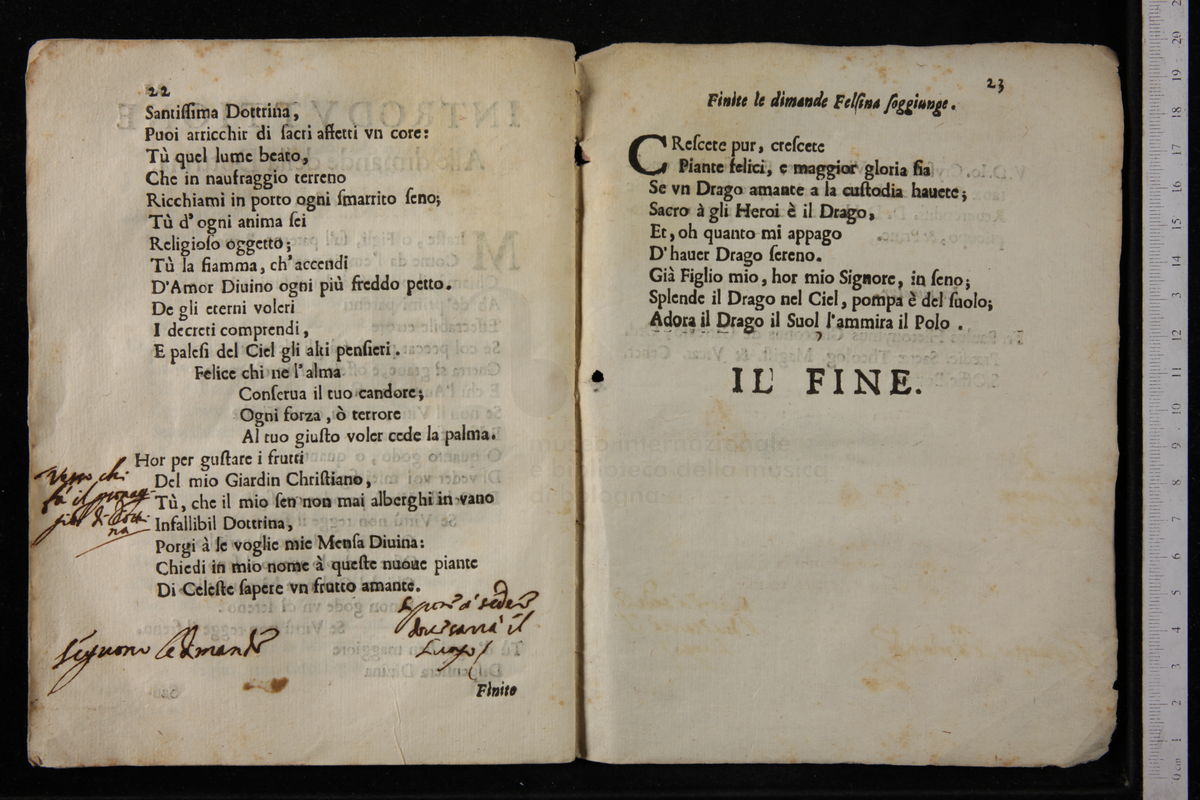 22
Santiſſima Dottrina,
Puoi arricchir di ſacri affetti vn core:
Tù quel lume beato,
Che in naufraggio terreno
Ricchiami in porto ogni ſmarrito ſeno;
Tù d'ogni anima ſei
Religioſo oggetto;
Tù la fiamma, ch'accendi
D'Amor Diuino ogni più freddo petto.
De gli eterni voleri
I decreti comprendi,
E paleſi del Ciel gli alti penſieri.
Felice chi ne l'alma
Conſerua il tuo candore;
Ogni forza, ò terrore
Al tuo giuſto voler cede la palma.
Hor per guſtare i frutti
Del mio Giardin Chriſtiano,
Tù, che il mio ſen non mai alberghi in vano
Infallibil Dottrina,
Porgi à le voglie mie Menſa Diuina:
Chiedi in mio nome à queſte nuoue piante
Di Celeſte ſapere vn frutto amante.
Verso chi
fà il
di
na
à seder
il
Luogo
Finite
23
Finite le dimande Felſina ſoggiunge.
CReſcete pur, creſcete
Piante felici, e maggior gloria fia
Se vn Drago amante a la cuſtodia hauete;
Sacro à gli Heroi è il Drago,
Et, oh quanto mi appago
D'hauer Drago ſereno.
Già Figlio mio, hor mio Signore, in ſeno;
Splende il Drago nel Ciel, pompa è del ſuolo;
Adora il Drago il Suol l'ammira il Polo.
IL FINE.
museo internazionale
e biblioteca della musica
di bologna